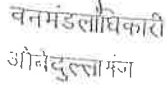 वनमंडलाधिकारी
ओबेदुल्लागंज